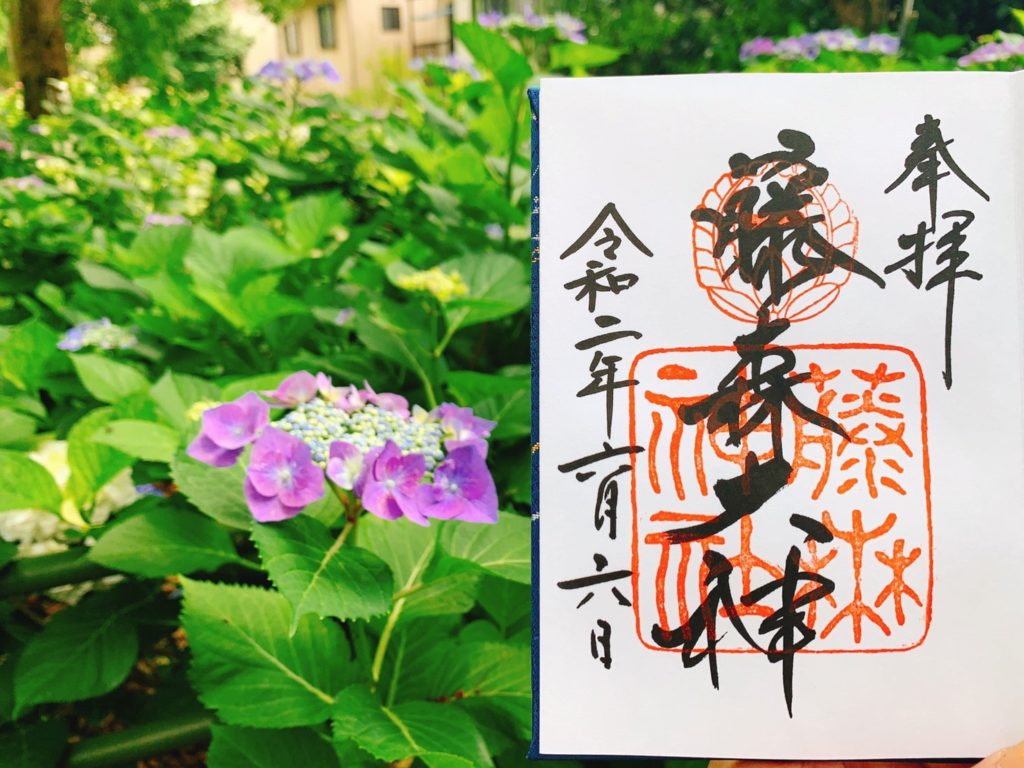 奉拝
藤森大神
藤森神社
令和二年六月六日